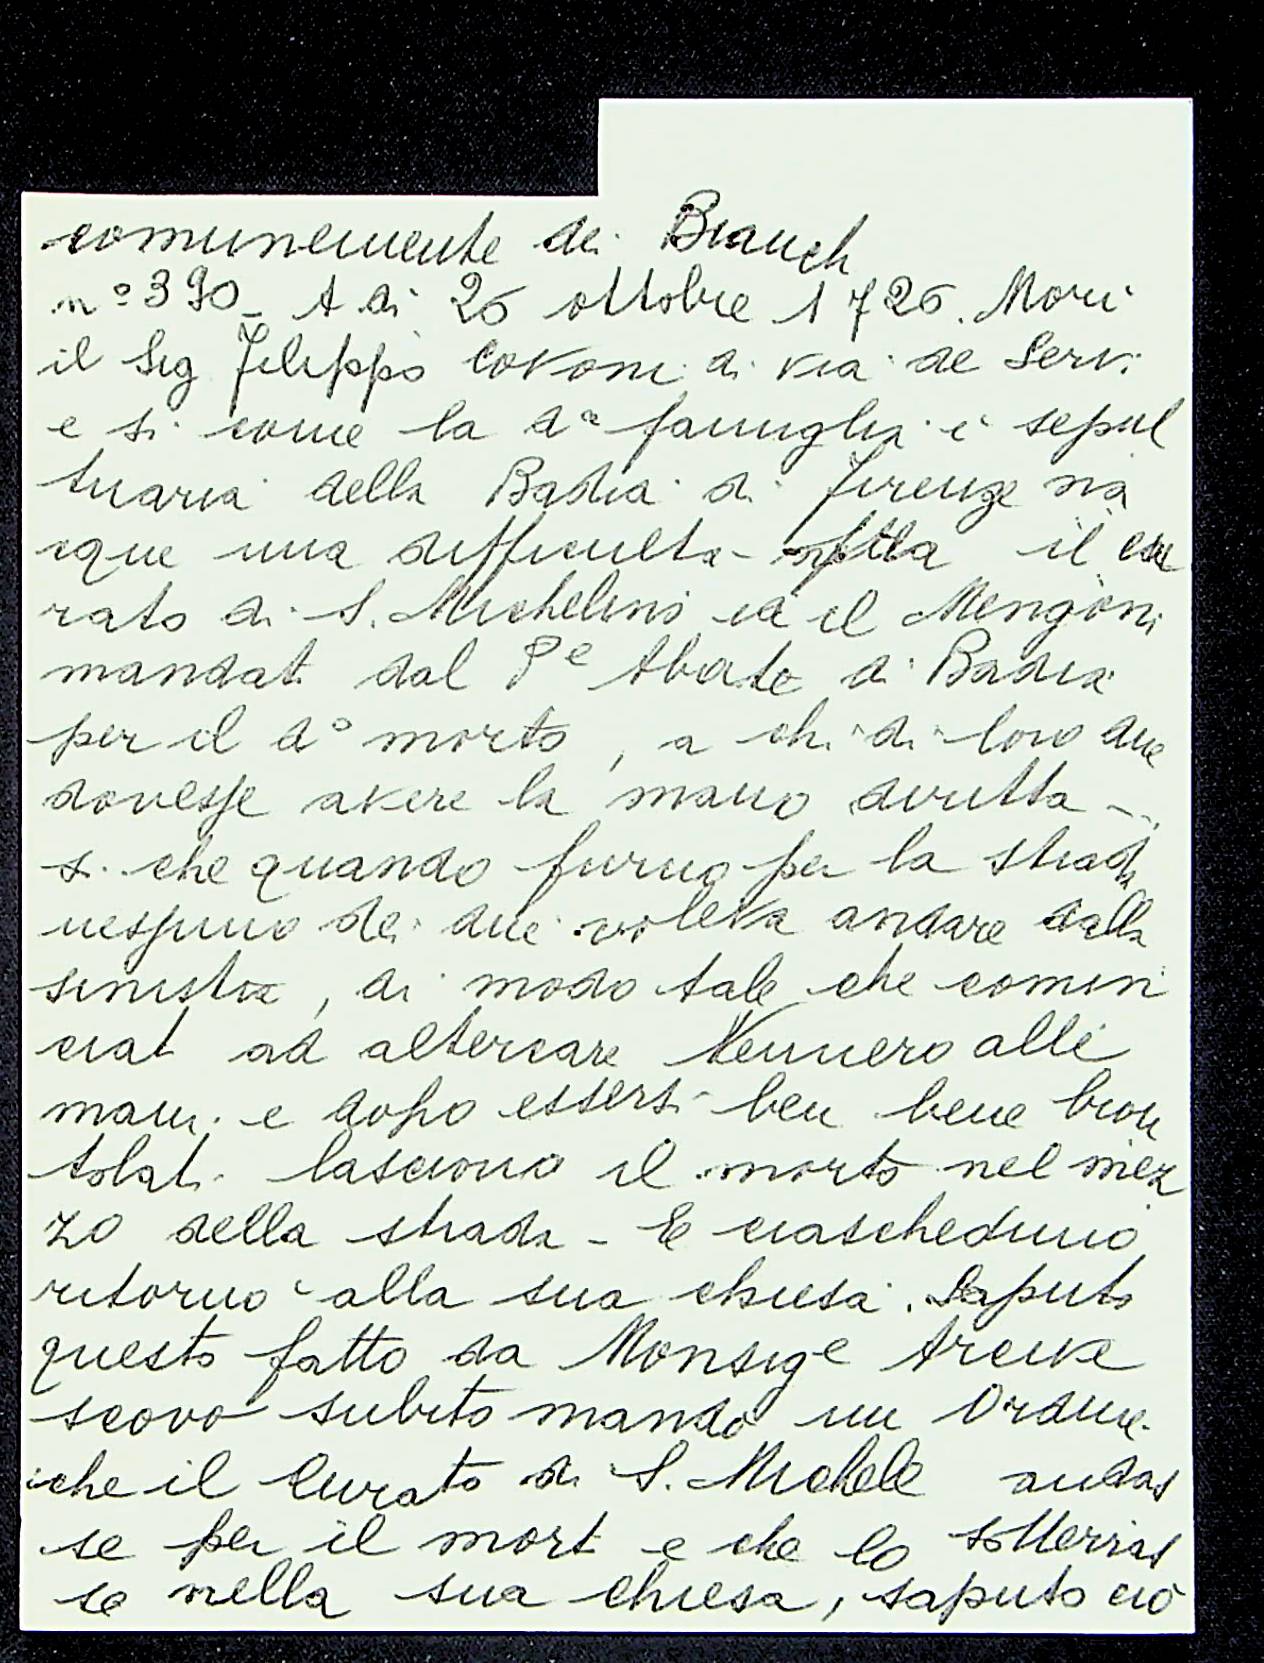 comunemente dei Bianch
n° 390 - A di 26 ottobre 1726. Mori
il Sig Filippo Covoni di via de Servi
e si come la da famiglia è sepul
tuaria della Badia di Firenze na
cque una difficulta - il cu
rato di S. Michelino ed il Mengoni
mandati dal Pe Abate di Badia
per il do morto, a chi di loro due
dovesse avere la mano diritta -
si che quando furno per la strada
nessuno dei due voleva andare dalla
sinistra, di modo tale che comin
ciati ad altercare Vennero alle
mani e dopo essersi ben bene bron
tolati lasciono il morto nel mez
zo della strada - E ciascheduno
ritorno alla sua chiesa. Saputo
questo fatto da Monsige Arcive
scovo subito mandò un Ordine
che il Curato di S. Michele andas
se per il mort e che lo sotterras
se nella sua chiesa, saputo ciò